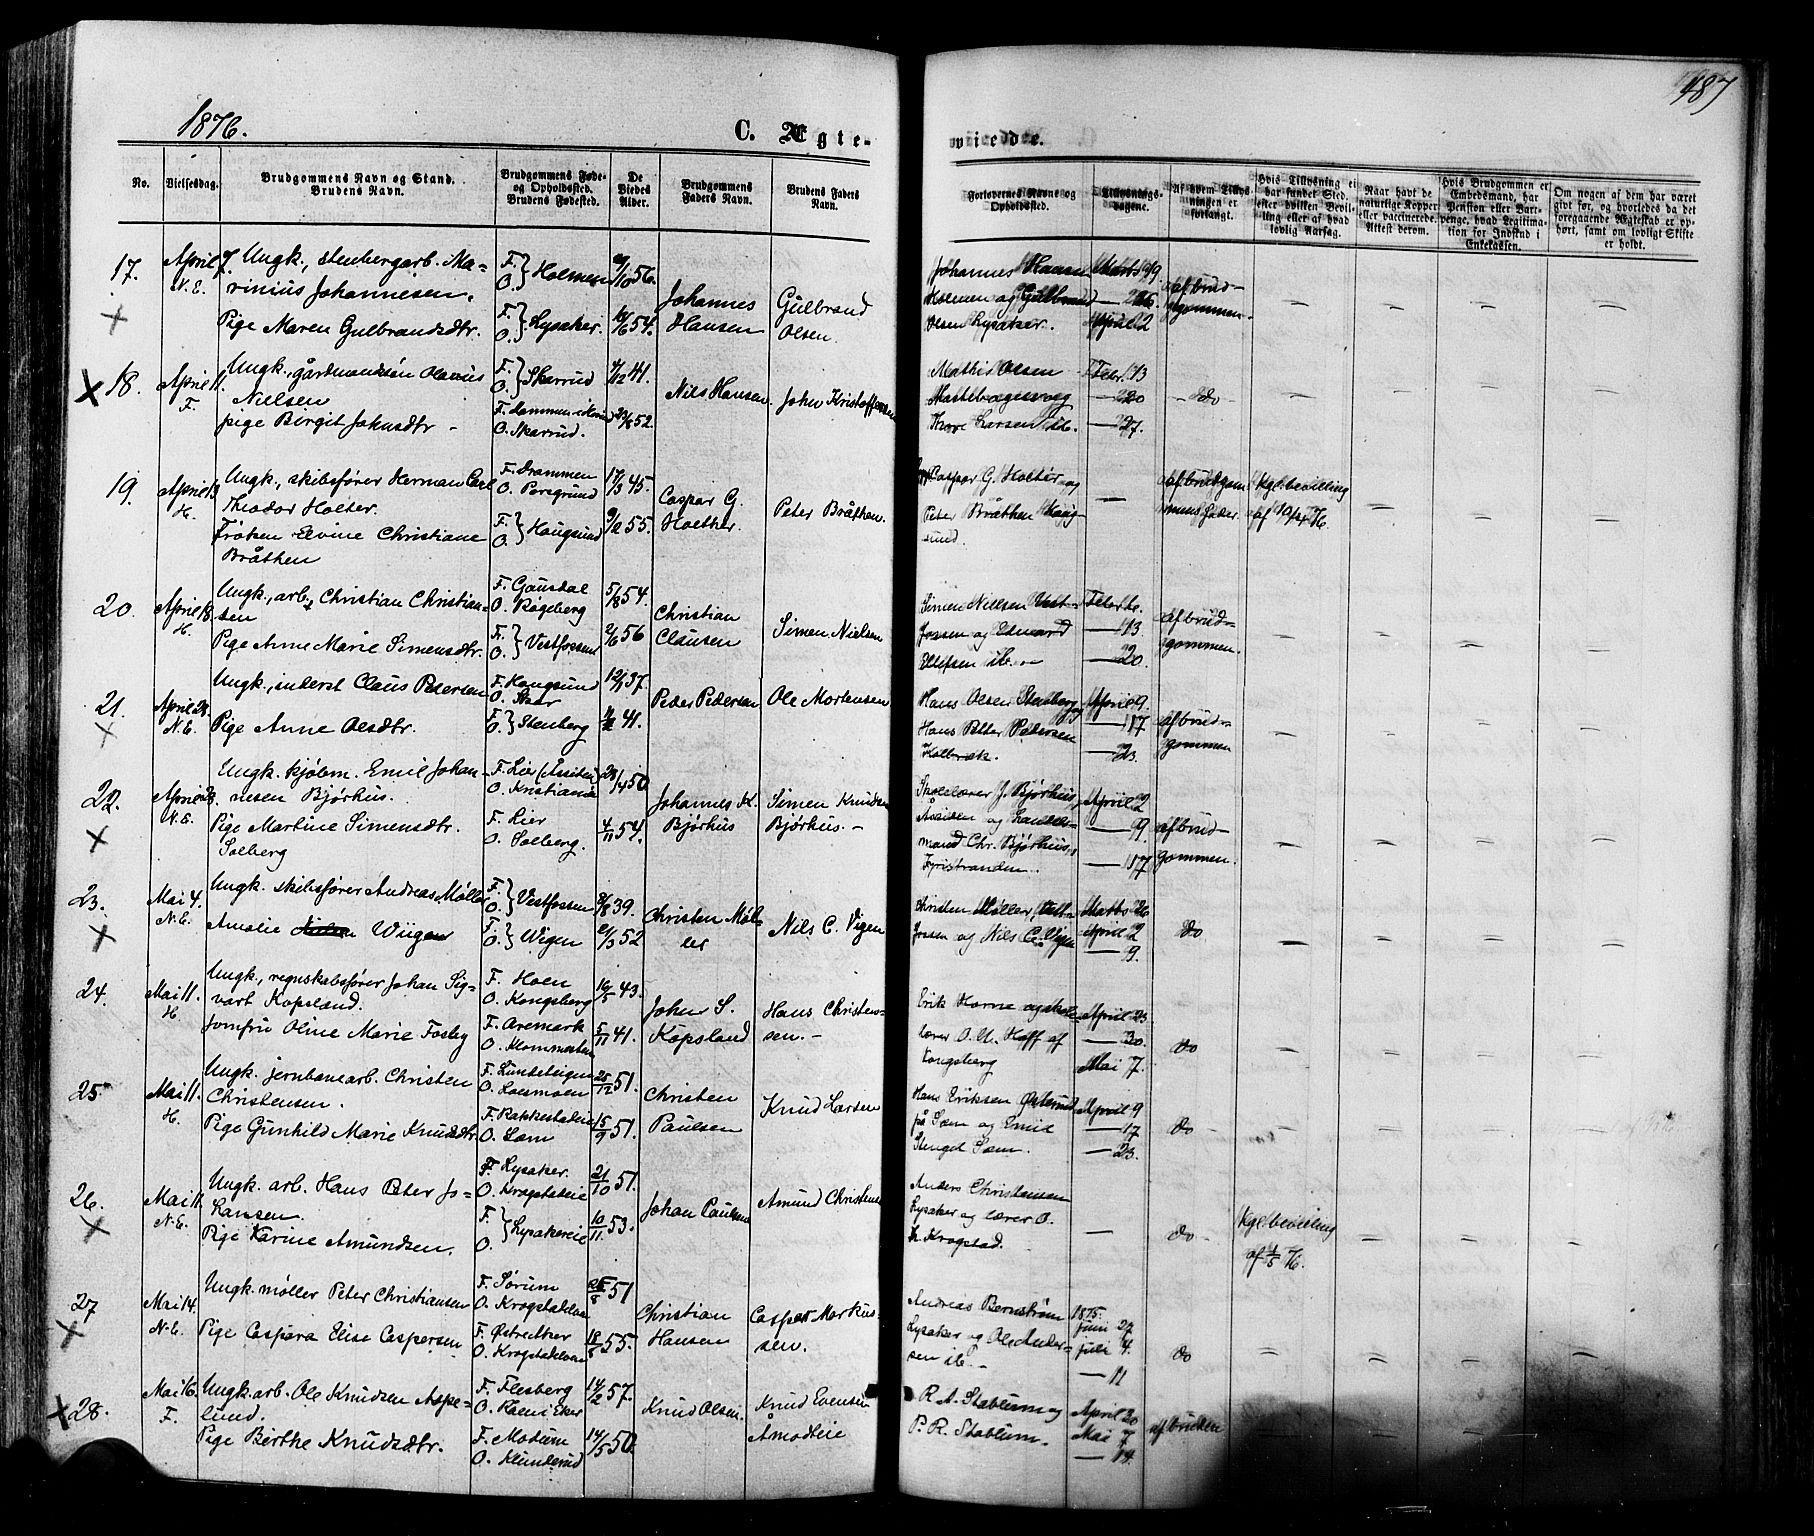 1876.
C. Ægte-
viede.
187
No.
Vielsesdag.
Brudgommens Navn og Stand.
Brudens Navn.
Brudgommens Føde-
og Opholdssted.
Brudens Fødested.
De
Viedes
Alder.
Brudgommens
Faders Navn.
Brudens Faders
Navn.
Forlovernes Navne og
Opholdssted.
Tillysnings-
dagene.
Af hvem Tillys-
ningen er
forlangt.
Hvis Tillysning ei
har fundet Sted,
efter hvilken Bevil-
ling eller af hvad
lovlig Aarsag.
Naar havt de
naturlige Kopper
eller vaccinerede.
Attest derom.
Hvis Brudgommen er
Embedsmand, har
Pension eller Vart-
penge, hvad Legitima-
tion for Indskud i
Enkekassen.
Om nogen af dem har været
gift før, og hvorledes da det
foregaaende Ægteskab er op-
hørt, samt om lovligt Skifte
er holdt.
17.
April 7.
N. E.
Ungk., stenbergarb. Ma-
rinius Johannesen.
Pige Maren Gulbrandsdtr.
F. } Holmen
O.
F. } Lysaker.
O.
56.
54.
Johannes
Hansen
Gulbrand
Olsen.
Johannes Hansen
Holmen og Gulbrand
Olsen Lysaker.
Marts 19.
— 26
April 2
af brud-
gommen.
18.
April 11.
F.
Ungk., gårdmandsøn Olavus
Nielsen
pige Birgit Johnsdtr –
F. } Skarrud
O.
O. Skarrud.
41.
52.
Nils Hansen.
John Kristoffersen
Mathis Olsen
Thore Larsen ib.
Febr. 13
— 20
— 27.
– do –
19.
April 13
H.
Ungk., skibsfører Herman Carl
Theodor Holter.
Frøken Elvine Christiane
Bråthen
F. Drammen
O. Porsgrund
F. } Hougsund
O.
17/3 45.
55.
Caspar G.
Holther.
Peter Bråthen.
Caspar G. Holter og
Peter Bråthen Houg-
sund.
—
af brudgom-
mens fader.
Kgl. bevilling
af 10/4 76.
20.
April 18.
H.
Ungk., arb. Christian Christian-
sen
Pige Anne Marie Simensdtr.
F. Gausdal
O. Røgeberg
F. } Vestfossen
O.
5/8 54.
2/6 56
Christian
Clausen
Simen Nielsen
Simen Nielsen Vest-
fossen og Edvard
Ellefsen ib. –
Febr. 6.
— 13
— 20.
af brud-
gommen.
21.
April 23.
N. E.
Ungk., inderst Claus Pedersen
Pige Anne Olsdtr.
F. Hougsund
O. Skar
F. } Stenberg
O.
37.
41.
Peder Pedersen
Ole Mortensen
Hans Olsen Stenberg og
Hans Peter Pedersen
Kolbræk.
April 9.
— 17
— 23.
af brud-
gommen
22.
April 23.
N. E.
Ungk. kjøbm. Emil Johan-
nesen Bjørhus.
Pige Martine Simensdtr.
Solberg
F. Lier (Åssiden)
O. Kristiania
F. Lier
O. Solberg.
23/4 50
4/11 54.
Johannes K.
Bjørhus
Simen Knudsen
Bjørhus. –
Skolelærer J. Bjørhus,
Åssiden og
mand Chr. Bjørhus,
Fyristranden.
April 2
— 9.
— 17
af brud-
gommen.
23.
Mai 4.
N. E.
Ungk. skibsfører Andreas Møller
Amalie Wiigen
F. } Vestfossen
O.
F. } Wigen
O.
39.
52
Christen Møl-
ler
Nils C. Vigen
Christen Møller, Vest-
fossen og Nils C. Vigen
Marts 26
April 2
— 9.
do
24.
Mai 11.
H.
Ungk., regnskabsfører Johan Sig-
vart Kopsland.
Jomfru Oline Marie Fosby
F. Hoen
O. Kongsberg
F. Aremark
16/5 43.
5/11 41.
John S.
Kopsland
Hans Christen-
sen. –
Erik Horne og skole-
lærer O. N. Hoff af
Kongsberg
April 23
— 30.
Mai 7.
do
25.
Mai 11.
H.
Ungk. jernbanearb. Christen
Christensen.
Pige Gunhild Marie Knudsdtr
O. Loesmoen
F. Rakkestadeie
O. Sam
25/12 51.
15/9 51.
Christen
Paulsen
Knud Larsen
Hans Eriksen Østerud
på Sam og Emil
Stengel Sam.
April 9
— 17
— 23.
do
26.
Mai 11.
N. E.
Ungk. arb. Hans Peter Jo-
hansen.
Pige Karine Amundsen.
F. Lysaker.
O. Krogstadeie
F. } Lysakereie
O.
21/10 51.
10/11 53.
Johan Paulsen
Amund Christensen
Anders Christensen
Lysaker og lærer O.
H. Krogstad.
—
do –
Kgl. bevilling
af 1/5 76.
27
Mai 14.
N. E.
Ungk. møller Peter Christiansen
Pige Caspara Elise Caspersen
F. Sørum
O. Krogstadelven
O. Krogstadelven
51
18/5 55.
Christian
Hansen
Casper Markus-
sen.
Andreas Bernstrøm
Lysaker og Ole Ander-
sen ib. –
1875.
Juni 27
Juli 4.
— 11
do
28.
Mai 16.
F.
Ungk. arb. Ole Knudsen Aspe-
lund.
Pige Berthe Knudsdtr.
F. Flesberg
O. Hoen i Eker
F. Modum
O. Klunderud
14/2 57.
14/5 50.
Knud Olsen.
Knud Evensen
Åmodteie
R. A. Stablum og
P. R. Stablum.
April 30
Mai 7
— 14.
af bruden